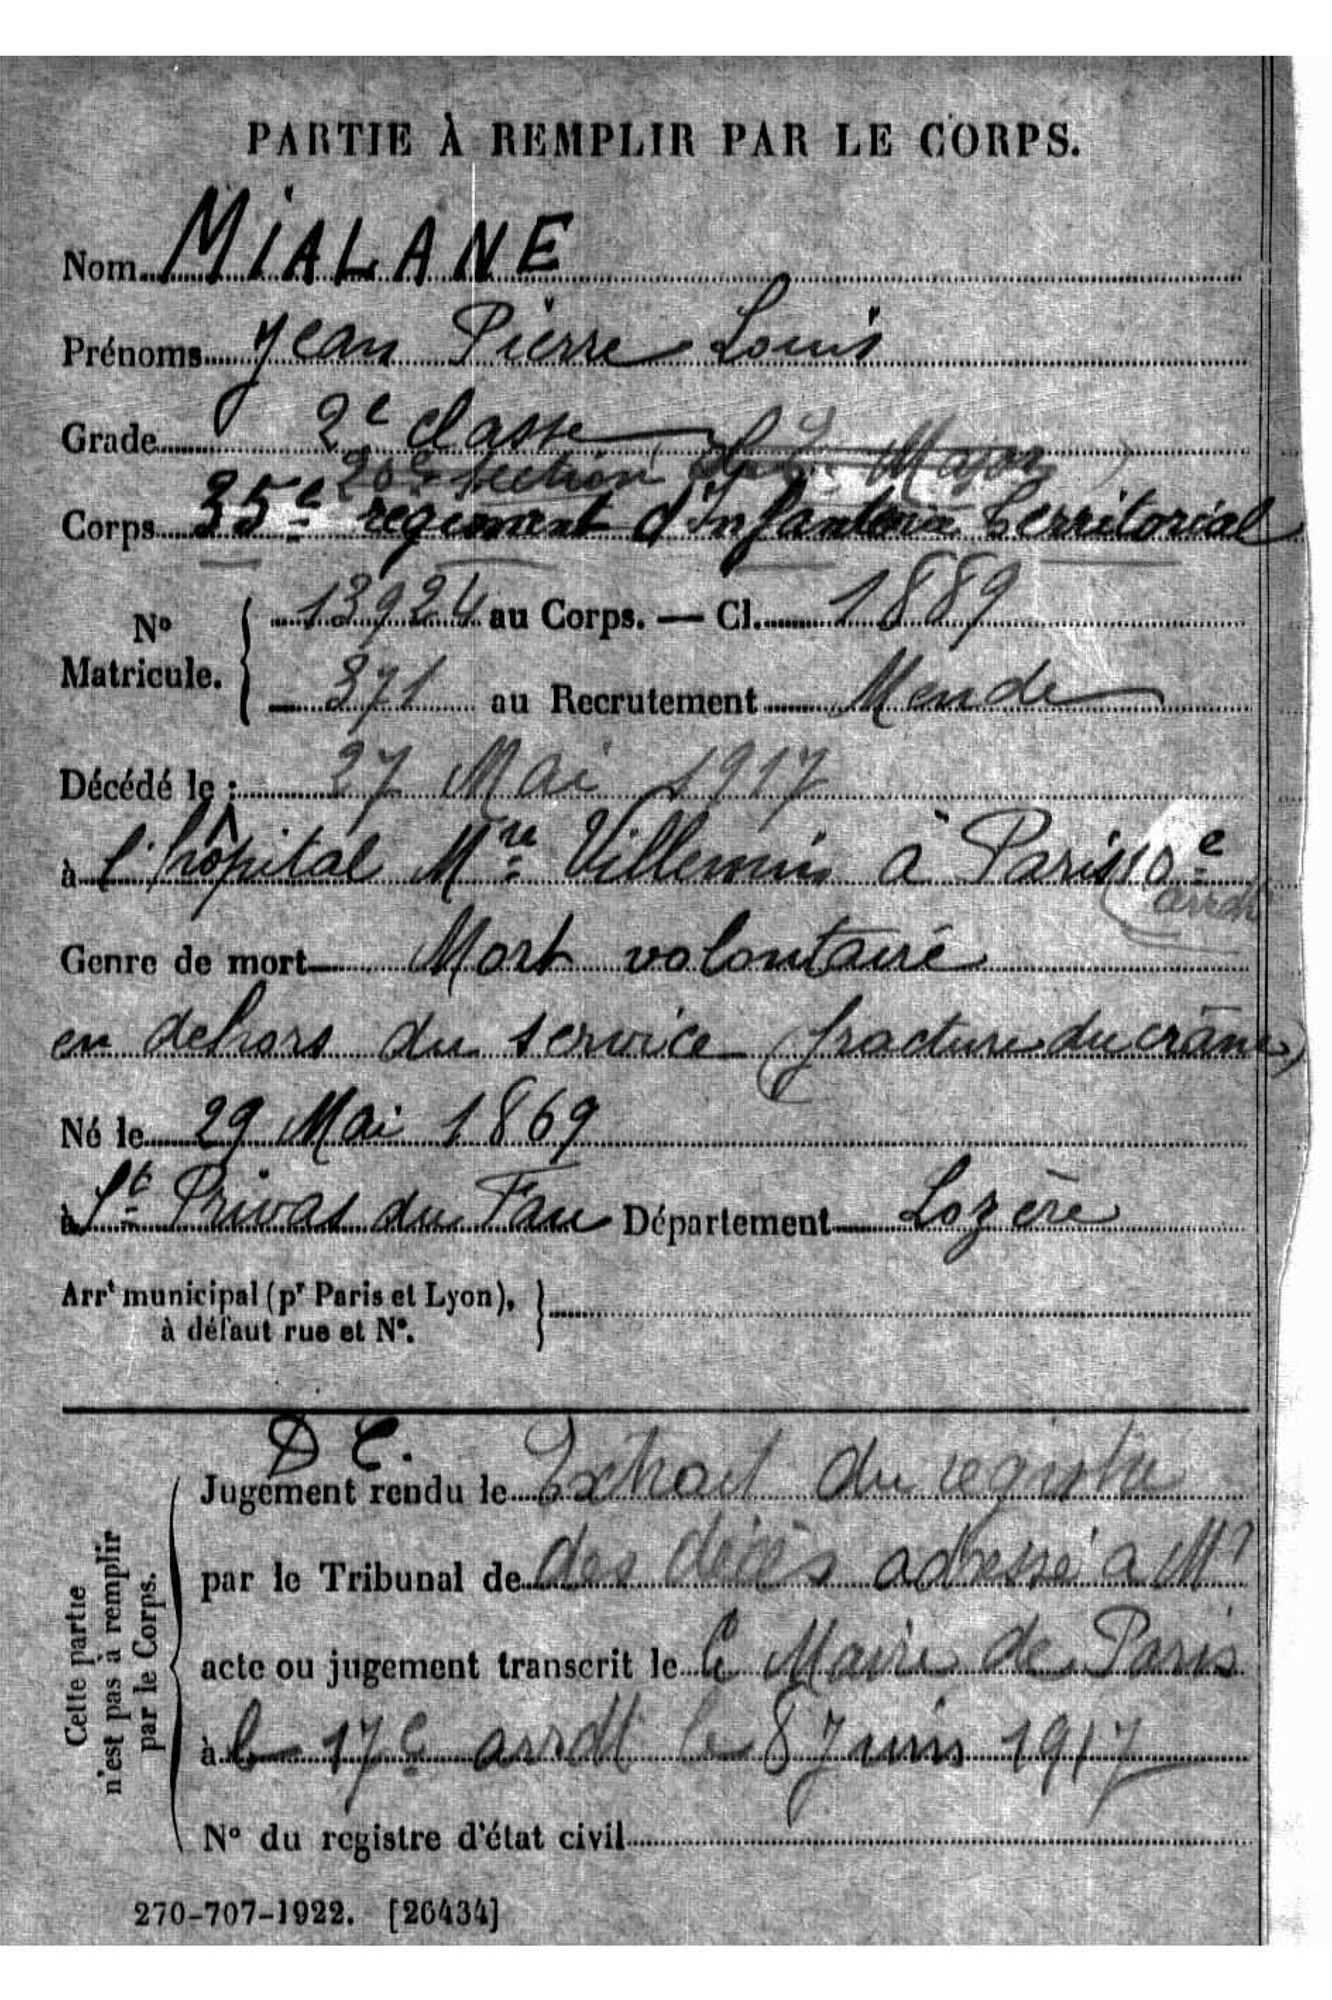 PARTIE À REMPLIR PAR LE CORPS.
Nom MIALANE
Prénoms Jean Pierre Louis
Grade 2e classe
20e Section Major
Corps 35e régiment d'Infanterie territorial
No Matricule. 13924 au Corps. — Cl. 1889
371 au Recrutement Mende
Décédé le : 27 Mai 1917
à l'hôpital Mre Villemin à Paris 10e
arrdt
Genre de mort Mort volontaire
en dehors du service (fracture du crâne)
Né le 29 Mai 1869
à St Privat du Fau Département Lozère
Arrt municipal (pr Paris et Lyon),
à défaut rue et No.
D C.
Cette partie n'est pas à remplir par le Corps.
Jugement rendu le Extrait du registre
par le Tribunal de des décès adressé à Mr
acte ou jugement transcrit le le Maire de Paris
à le 17e arrdt le 8 Juin 1917
No du registre d'état civil
270-707-1922. [26434]